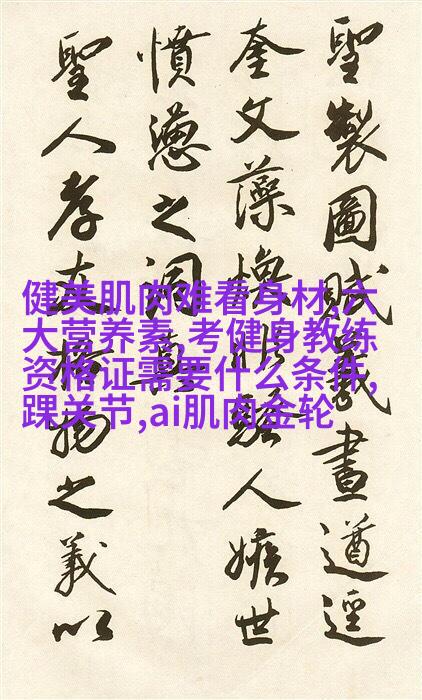 聖製圖畫遒逕
奎文藻騷人嫉世
憤懣之詞
聖人存物之義以
健美肌肉难看身材,六
大营养素,考健身教练
资格证需要什么条件,
踝关节,ai肌肉金轮